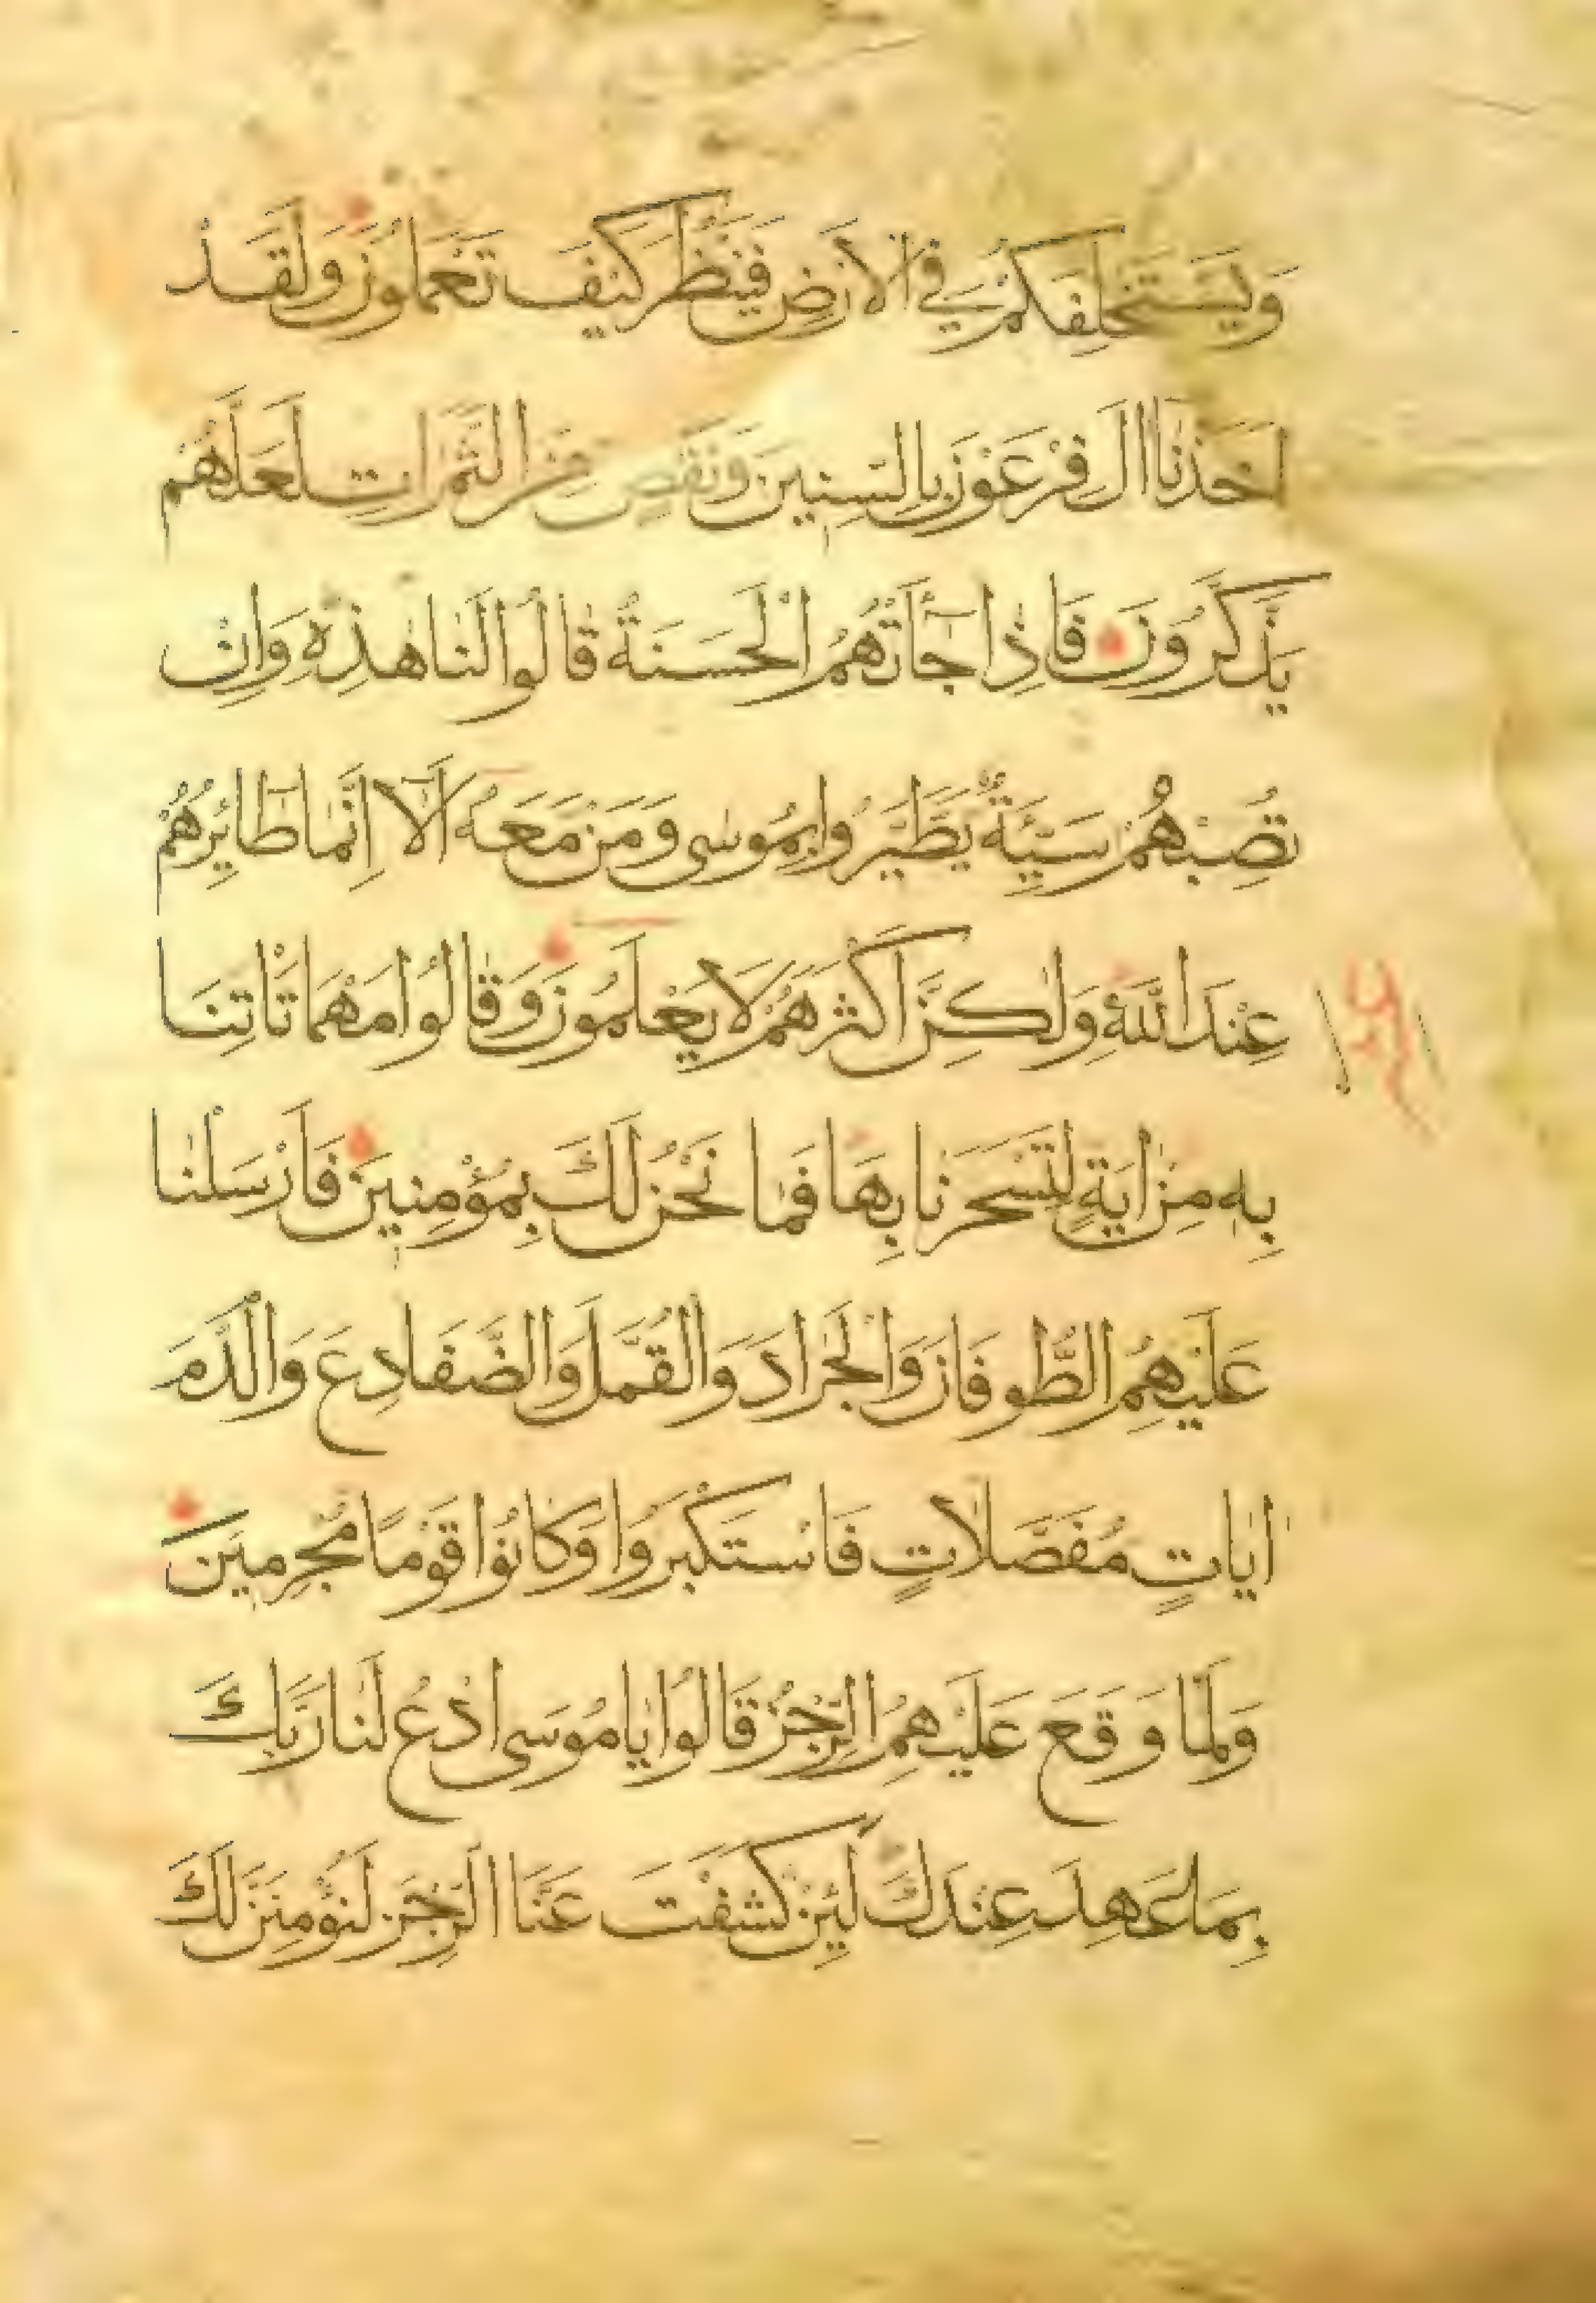 وَيَسْتَخْلِفَكُمْ فِي الْاَرْضِ فَيَنْظُرَ كَيْفَ تَعْمَلُونَ وَلَقَدْ
اَخَذْنَا اٰلَ فِرْعَوْنَ بِالسِّنِينَ وَنَقْصٍ مِنَ الثَّمَرَاتِ لَعَلَّهُمْ
يَذَّكَّرُونَ فَاِذَا جَآءَتْهُمُ الْحَسَنَةُ قَالُوا لَنَا هٰذِهِ وَاِنْ
تُصِبْهُمْ سَيِّئَةٌ يَطَّيَّرُوا بِمُوسٰى وَمَنْ مَعَهُ اَلَآ اِنَّمَا طَآئِرُهُمْ
عِنْدَ اللّٰهِ وَلٰكِنَّ اَكْثَرَهُمْ لَا يَعْلَمُونَ وَقَالُوا مَهْمَا تَاْتِنَا
بِهٖ مِنْ اٰيَةٍ لِتَسْحَرَنَا بِهَا فَمَا نَحْنُ لَكَ بِمُؤْمِنِينَ فَاَرْسَلْنَا
عَلَيْهِمُ الطُّوفَانَ وَالْجَرَادَ وَالْقُمَّلَ وَالضَّفَادِعَ وَالدَّمَ
اٰيَاتٍ مُفَصَّلَاتٍ فَاسْتَكْبَرُوا وَكَانُوا قَوْمًا مُجْرِمِينَ
وَلَمَّا وَقَعَ عَلَيْهِمُ الرِّجْزُ قَالُوا يَا مُوسَى ادْعُ لَنَا رَبَّكَ
بِمَا عَهِدَ عِنْدَكَ لَئِنْ كَشَفْتَ عَنَّا الرِّجْزَ لَنُؤْمِنَنَّ لَكَ